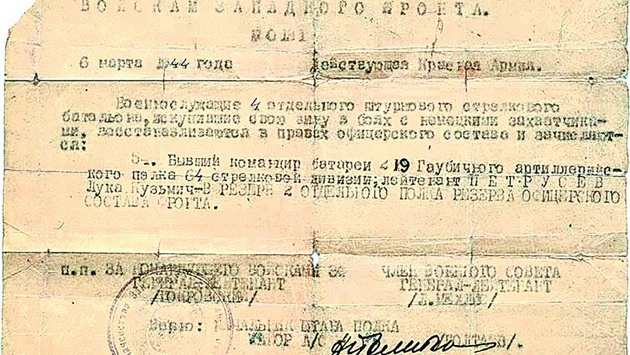 ВОЙСКАМ ЗАПАДНОГО ФРОНТА.
6 марта 1944 года Действующая Красная Армия.
Военнослужащие 4 отдельного штурмового стрелкового
батальона, искупившие свою вину в боях с немецкими захватчика-
ми, восстанавливаются в правах офицерского состава и зачисляют-
ся:
5. Бывший командир батареи 219 Гаубичного артиллерийс-
кого полка 64 стрелковой дивизии, лейтенант ПЕТРУСЕВ
Лука Кузьмич-В РЕЗЕРВ 2 ОТДЕЛЬНОГО ПОЛКА РЕЗЕРВА ОФИЦЕРСКОГО
СОСТАВА ФРОНТА.
п.п. ЗА КОМАНДУЮЩЕГО ВОЙСКАМИ ЗФ ЧЛЕН ВОЕННОГО СОВЕТА
ГЕНЕРАЛ-ЛЕЙТЕНАНТ ГЕНЕРАЛ-ЛЕЙТЕНАНТ
/ПОКРОВСКИЙ/ /Л.МЕХЛИС/
Верно: НАЧАЛЬНИК ШТАБА ПОЛКА
МАЙОР А/С /ПОЛТАЕВ/.